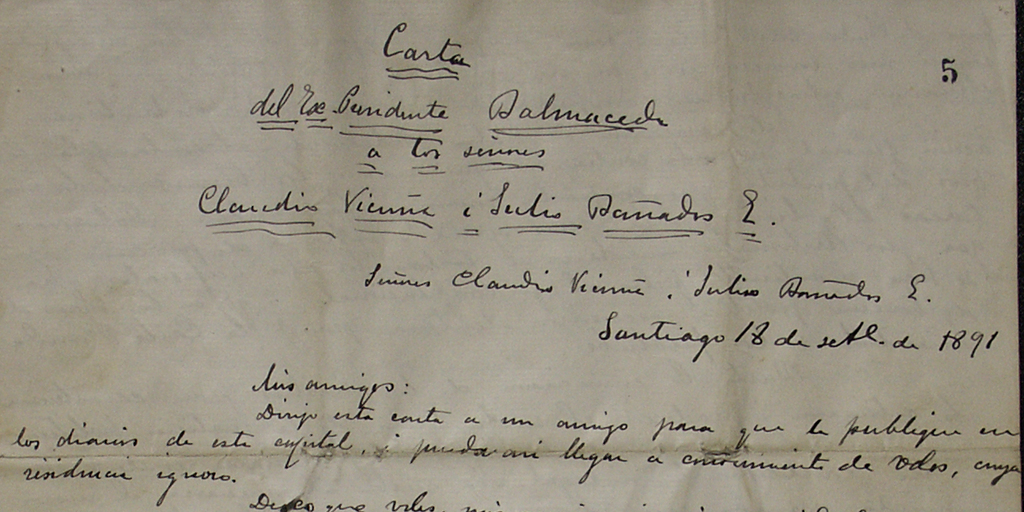 Carta
5
del Ex-Presidente Balmaceda
a los señores
Claudio Vicuña i Julio Bañados E.
Señores Claudio Vicuña i Julio Bañados E.
Santiago 18 de setbe. de 1891
Mis amigos:
Dirijo esta carta a un amigo para que la publique en
los diarios de esta capital, i pueda asi llegar a conocimiento de Vdes, cuya
residencia ignoro.
Deseo que Vdes,